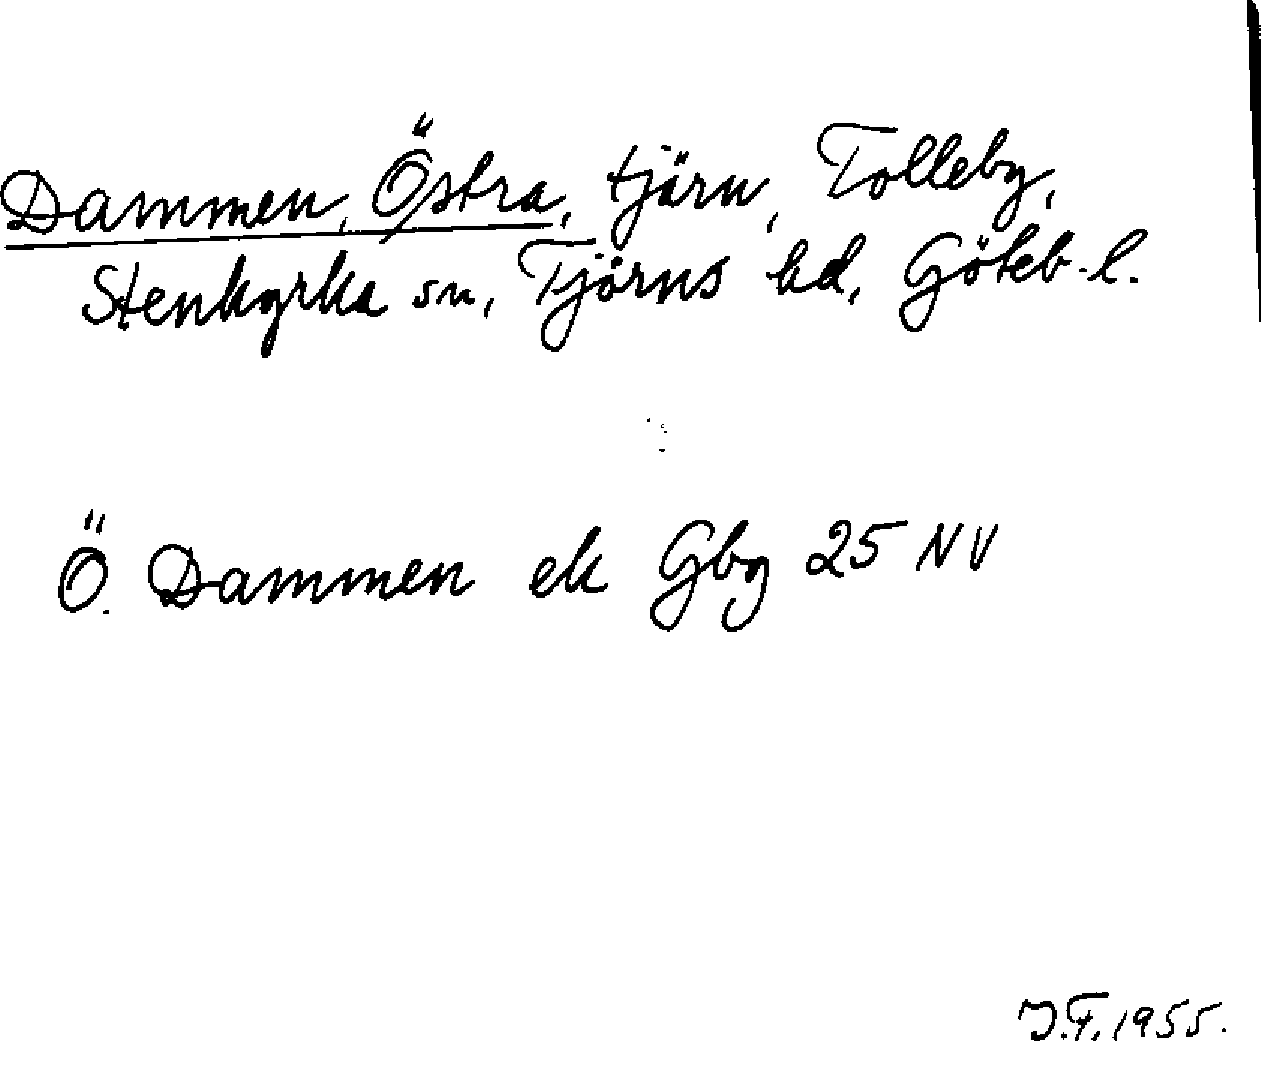 Dammen, Östra, tjärn, Tolleby,
Stenkyrka sn, Tjörns hd, Göteb.l.
Ö. Dammen ek Gbg 25 NV
J.F. 1955.